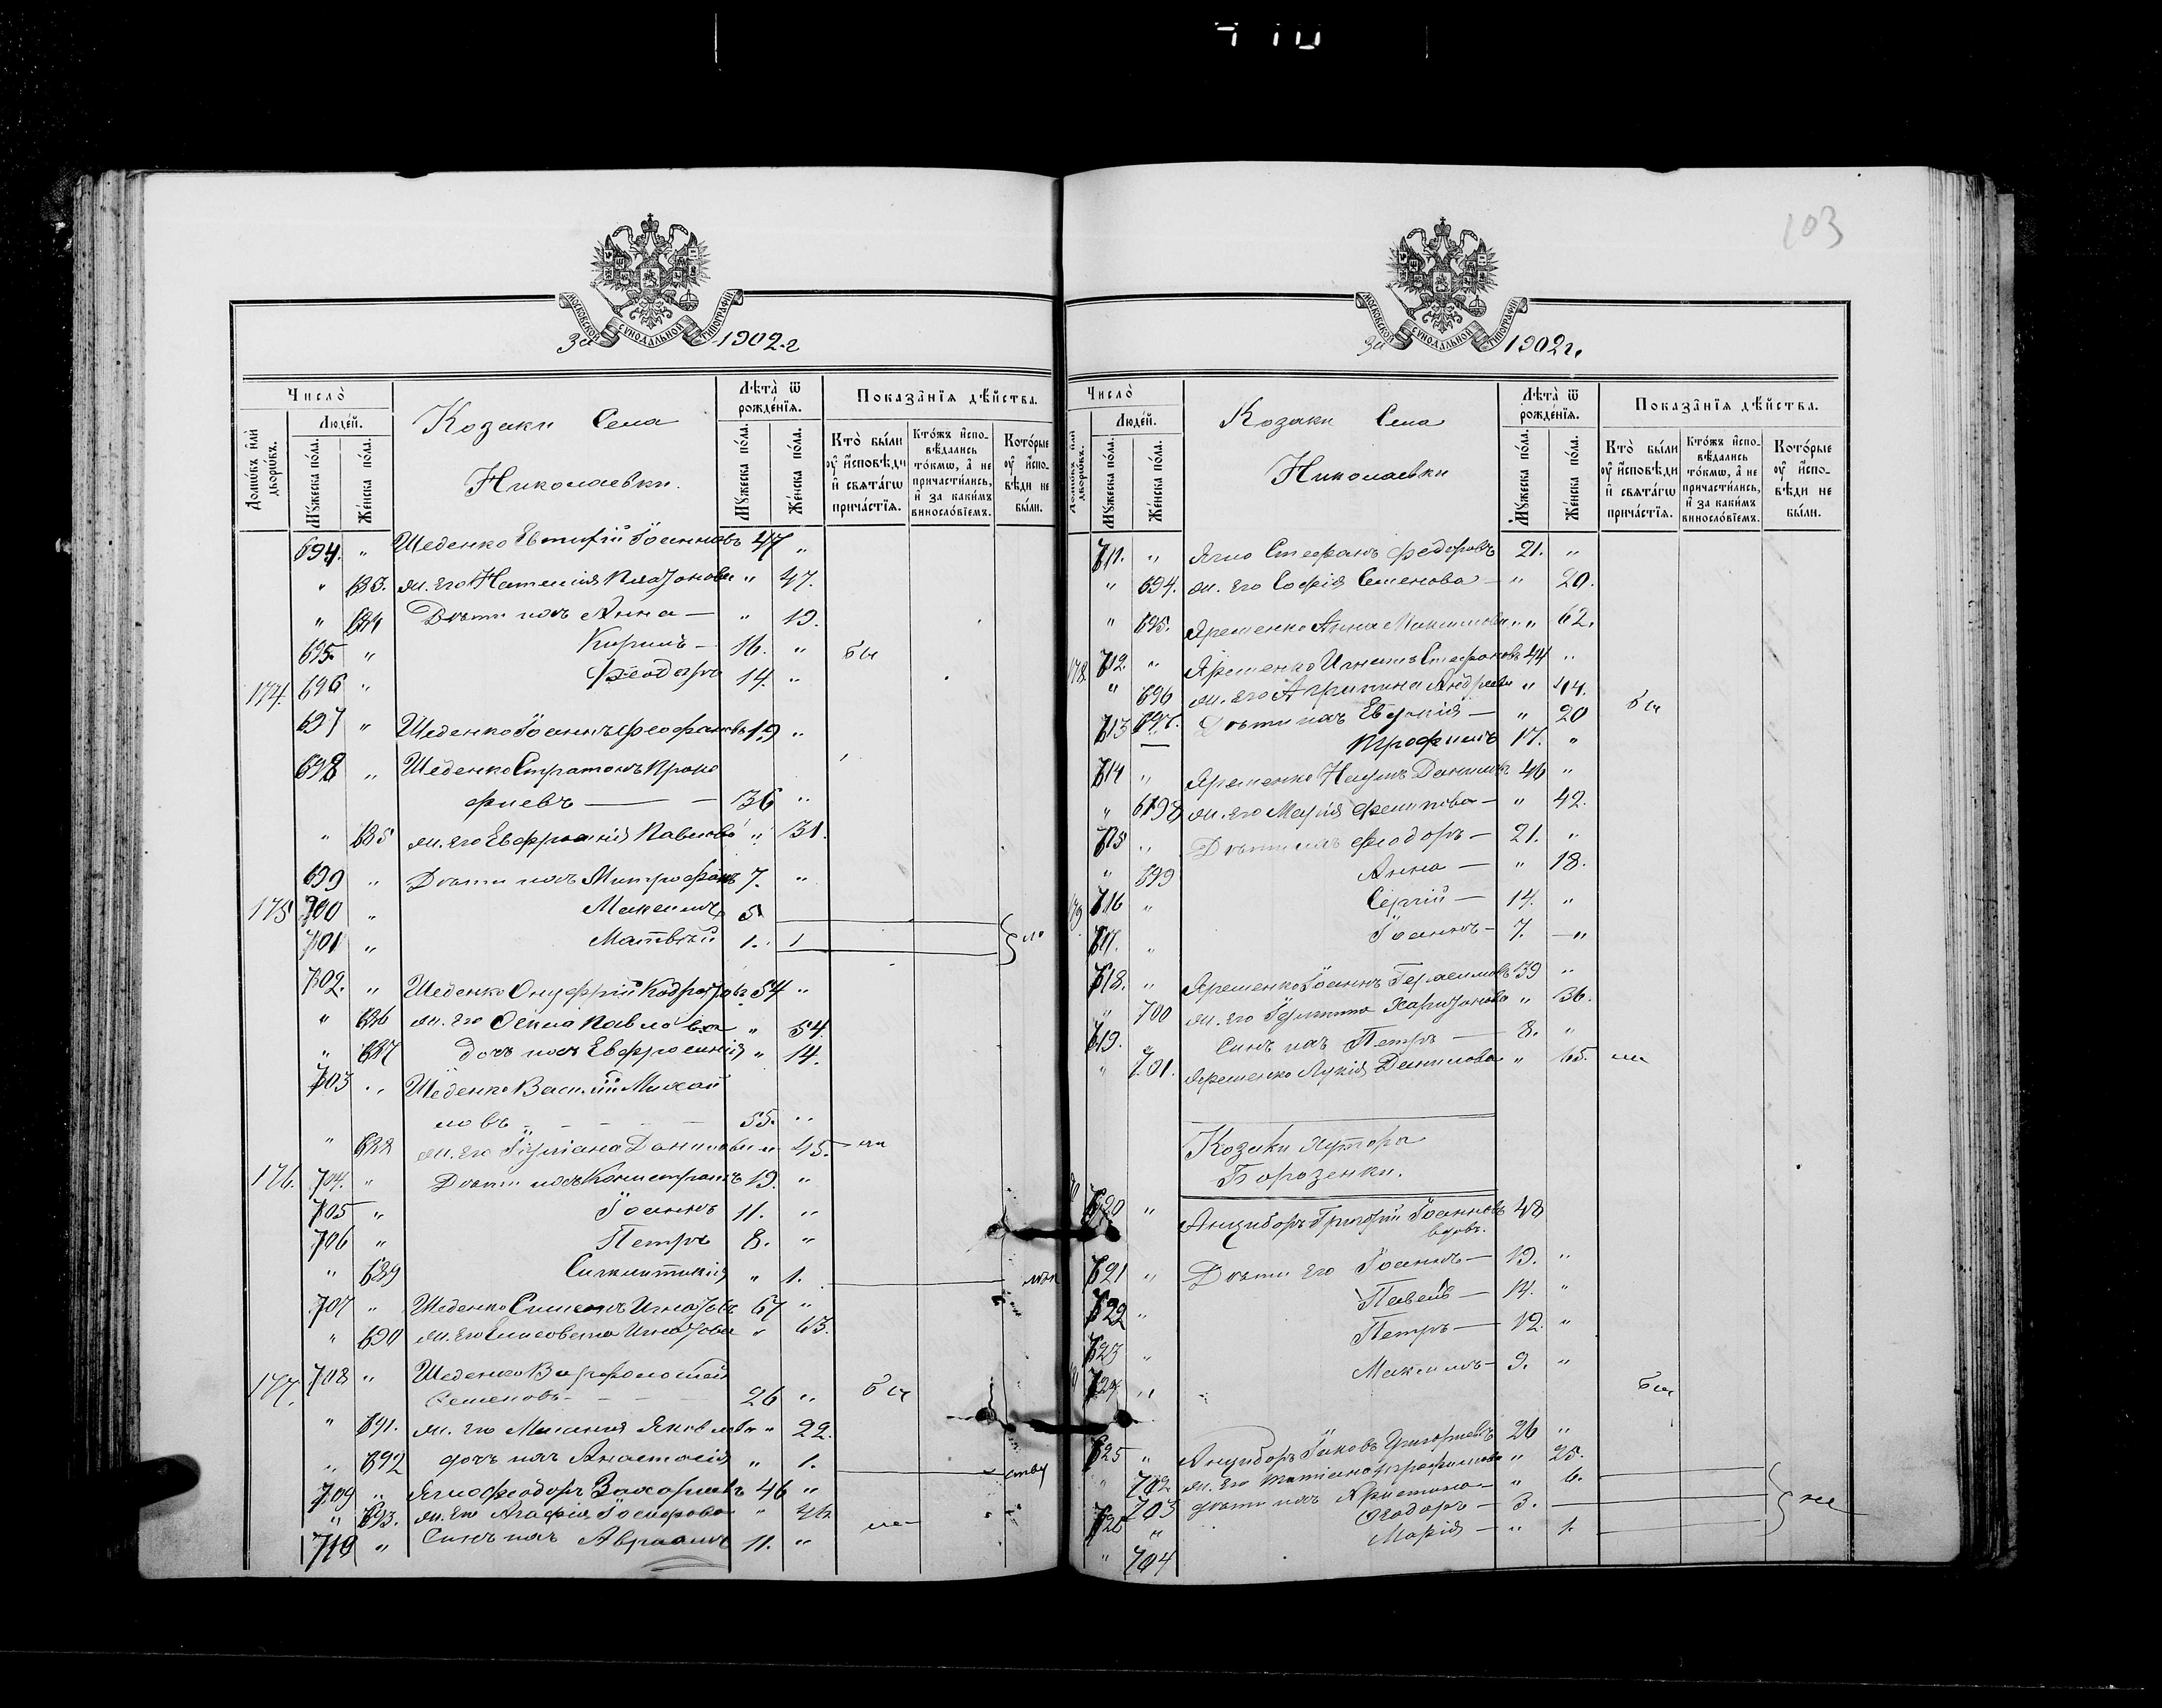 103
МОСКОВСКОЙ СѴНОДАЛЬНОЙ ТИПОГРАФІИ
За 1902 г
Число̀
Людей.
Домѡвъ и҆лѝ дворѡвъ.
Мꙋжеска по́ла.
Же́нска по́ла.
Козаки Села
Николаевки.
Лѣта̀ ѿ рожде́нїѧ.
Мꙋжеска по́ла.
Же́нска по́ла.
Показа̑нїѧ дѣ́йства.
Кто̀ бы́ли оу҆ и҆сповѣди и҆ свѧта́гѡ прича́стїѧ.
Кто́жъ и҆спо-вѣ́дались то́кмѡ, а҆ не причасти́лись, и҆ за каки́мъ винослόвїемъ.
Кото́рые оу҆ и҆спо-вѣди не бы́ли.
694. " Шеденко Евтифій Іоанновъ 47 "
" 683. ж. его Наталія Платонова " 47.
" 684 Дѣти ихъ Анна — " 19.
695. " Кирилъ — 16. " бы
174. 696 " Феодоръ 14. "
697 " Шеденко Іоаннъ Феофановъ 19 "
698 " Шеденко Стратонъ Проко
фиевъ — 36 "
" 685 ж. его Евфросинія Павлова " 31.
699 " Дѣти ихъ Митрофанъ 7. "
175 700 " Максимъ 5
701 " Матвѣй 1.
702. " Шеденко Онуфрій Кодратовъ 54 "
" 686 ж. его Павлова " 54.
" 687 дочь ихъ Евфросинія " 14.
703 " Шеденко Василій Михай
ловъ 55. "
" 688 ж. его Іуліана Данилова " 45. ли
176. 704. " Дѣти ихъ 19. "
705 " Іоаннъ 11. "
706 " Петръ 8. "
" 689 Синклитикія " 1.
707 " Шеденко Симеонъ Игнатовъ 67 "
" 690 ж. его Елисавета Игнатова " 63.
177. 708 " Шеденко Варфоломей
Семеновъ 26 " бы
" 691. ж. его Меланія Яковлева " 22.
" 692 дочь ихъ Анастасія " 1.
709 " Ягло Феодоръ Захаріевъ 46 "
" 693. ж. его Агафія Іосифова "
710 " Сынъ ихъ Авраамъ 11. " ли
За 1902 г.
Число̀
Людей.
Домѡвъ и҆лѝ дворѡвъ.
Мꙋжеска по́ла.
Же́нска по́ла.
Козаки Села
Николаевки
Лѣта̀ ѿ рожде́нїѧ.
Мꙋжеска по́ла.
Же́нска по́ла.
Показа̑нїѧ дѣ́йства.
Кто̀ бы́ли оу҆ и҆сповѣди и҆ свѧта́гѡ прича́стїѧ.
Кто́жъ и҆спо-вѣ́дались то́кмѡ, а҆ не причасти́лись, и҆ за каки́мъ винослόвїемъ.
Кото́рые оу҆ и҆спо-вѣди не бы́ли.
711. " Ягло Стефанъ Федоровъ 21. "
" 694. ж. его Софія Семенова — " 20.
" 695. Яременко Анна Максимова " 62.
178 712 " Яременко Игнатъ Стефановъ 44 "
" 696 ж. его Агрипина Андреева " 44.
713 697. Дѣти ихъ Евдокія — " 20 бы
Трофимъ 17. "
714 " Яременко Наумъ Даниловъ 46 "
" 698 ж. его Марія Филипова — " 42.
715 " Дѣти ихъ Феодоръ — 21. "
" 699 Анна — " 18.
179 716 " Сергій — 14. "
717. " Іоаннъ — 7. "
718. " Яременко Іоаннъ Герасимовъ 39 "
" 700 ж. его Іулитта Харитонова " 36.
719. " Сынъ ихъ Петръ — 8. "
" 701. Яременко Лукія Данилова " 65. ли
Козаки Хутора
Борозенки.
720 " Анцыборъ Григорій Іоанновъ 48
вдовъ.
721 " Дѣти его Іоаннъ — 19. "
722 " Павелъ — 14. "
723 " Петръ — 12. "
724 " Максимъ — 9. "
бы
725 " Анцыборъ Іаковъ Григоріевъ 26 "
" 702 ж. его Татіана Трофимова " 25.
703 дѣти ихъ Христина — " 6.
726 " Феодоръ — 3.
" 704 Марія — " 1.